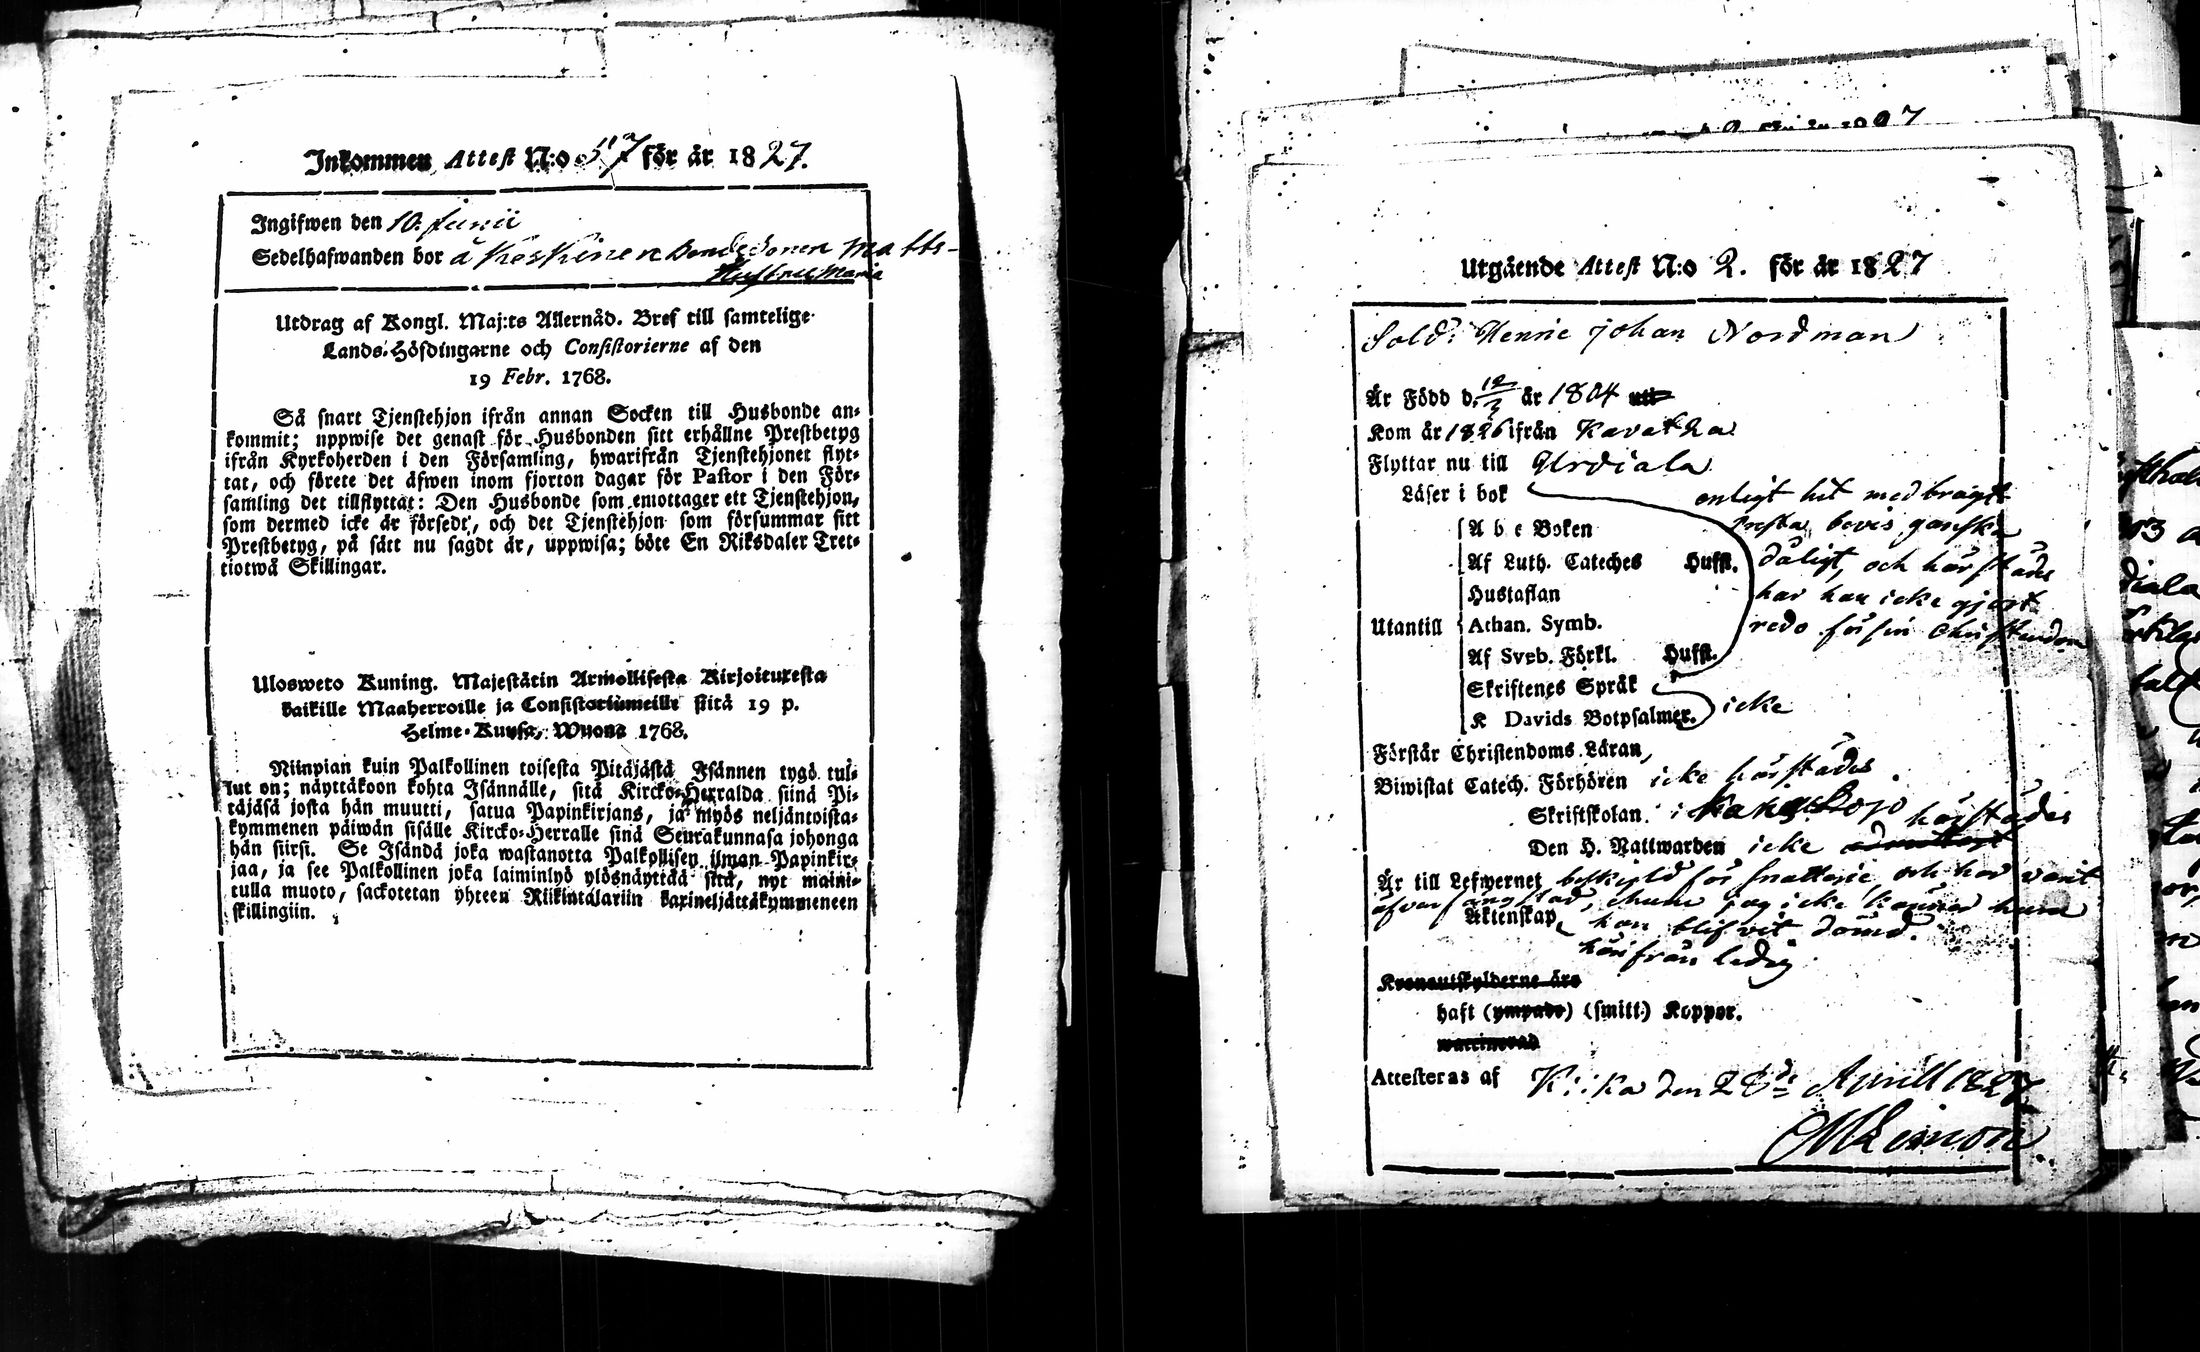 Inkommen Attest N:o 57 för år 1827.
Ingifwen den 10. Junii
Sedelhafwanden bor å Keskinen Bondesonen Matts
Hustru Maria
Utdrag af Kongl. Maj:ts Allernåd. Bref till samtelige
Lands-Höfdingarne och Consistorierne af den
19 Febr. 1768.
Så snart Tjenstehjon ifrån annan Socken till Husbonde an-
kommit; uppwise det genast för Husbonden sitt erhållne Prestbetyg
ifrån Kyrkoherden i den Församling, hwarifrån Tjenstehjonet flyt-
tat, och förete det äfwen inom fjorton dagar för Pastor i den För-
samling det tillflyttat: Den Husbonde som emottager ett Tjenstehjon,
som dermed icke är försedt, och det Tjenstehjon som försummar sitt
Prestbetyg, på sätt nu sagdt är, uppwisa; böte En Riksdaler Tret-
tiotwå Skillingar.
Ulosweto Kuning. Majestätin Armollisesta Kirjoituxesta
kaikille Maaherroille ja Consistoriumeille siitä 19 p.
Helme-Kuusa, Wuona 1768.
Niinpian kuin Palkollinen toisesta Pitäjästä Isännen tygö tul-
lut on; näyttäkoon kohta Isännälle, sitä Kircko-Herralda siinä Pi-
täjäsä josta hän muutti, satua Papinkirjans, ja myös neljäntoista-
kymmenen päiwän sisälle Kircko-Herralle sinä Seurakunnasa johonga
hän siirsi. Se Isändä joka wastanotta Palkollisen ilman Papinkir-
jaa, ja see Palkollinen joka laiminlyö ylösnäyttää sitä, nyt maini-
tulla muoto, sackotetan yhteen Riikintalariin kaxineljättäkymmeneen
skillingiin.
Utgående Attest N:o 2. för år 1827
Sold: Henric Johan Nordman
Är Född d. 12/3 år 1804
Kom år 1826 ifrån Karatka
Flyttar nu till Urdiala
Läser i bok enligt hit medbragt
A b c Boken presta bevis ganska
Af Luth. Cateches Hufst. dåligt, och härstädes
Hustaflan har han icke gjort
Utantill Athan. Symb. redo för sin Christendom
Af Sveb. Förkl. Hufst.
Skriftenes Språk
K Davids Botpsalmer. icke
Förstår Christendoms Läran,
Biwistat Catech. Förhören icke härstädes
Skriftskolan. härstädes
Den H. Nattwarden icke
Är till Lefwernet beskyld för snatterie och har varit
Äktenskap han blifvit dömd.
härifrån ledig
Kronoutskylderne äro
haft (ympade) (smitt.) Koppor.
waccinerad
Attesteras af Kiika den 28de Aprill 1827